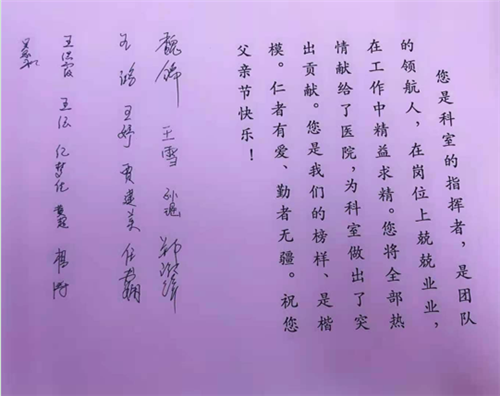 您是科室的指挥者，是团队
的领航人，在岗位上兢兢业业，
在工作中精益求精。您将全部热
情献给了医院，为科室做出了突
出贡献。您是我们的榜样、是楷
模。仁者有爱、勤者无疆。祝您
父亲节快乐！
王雪
王婷 贾建美